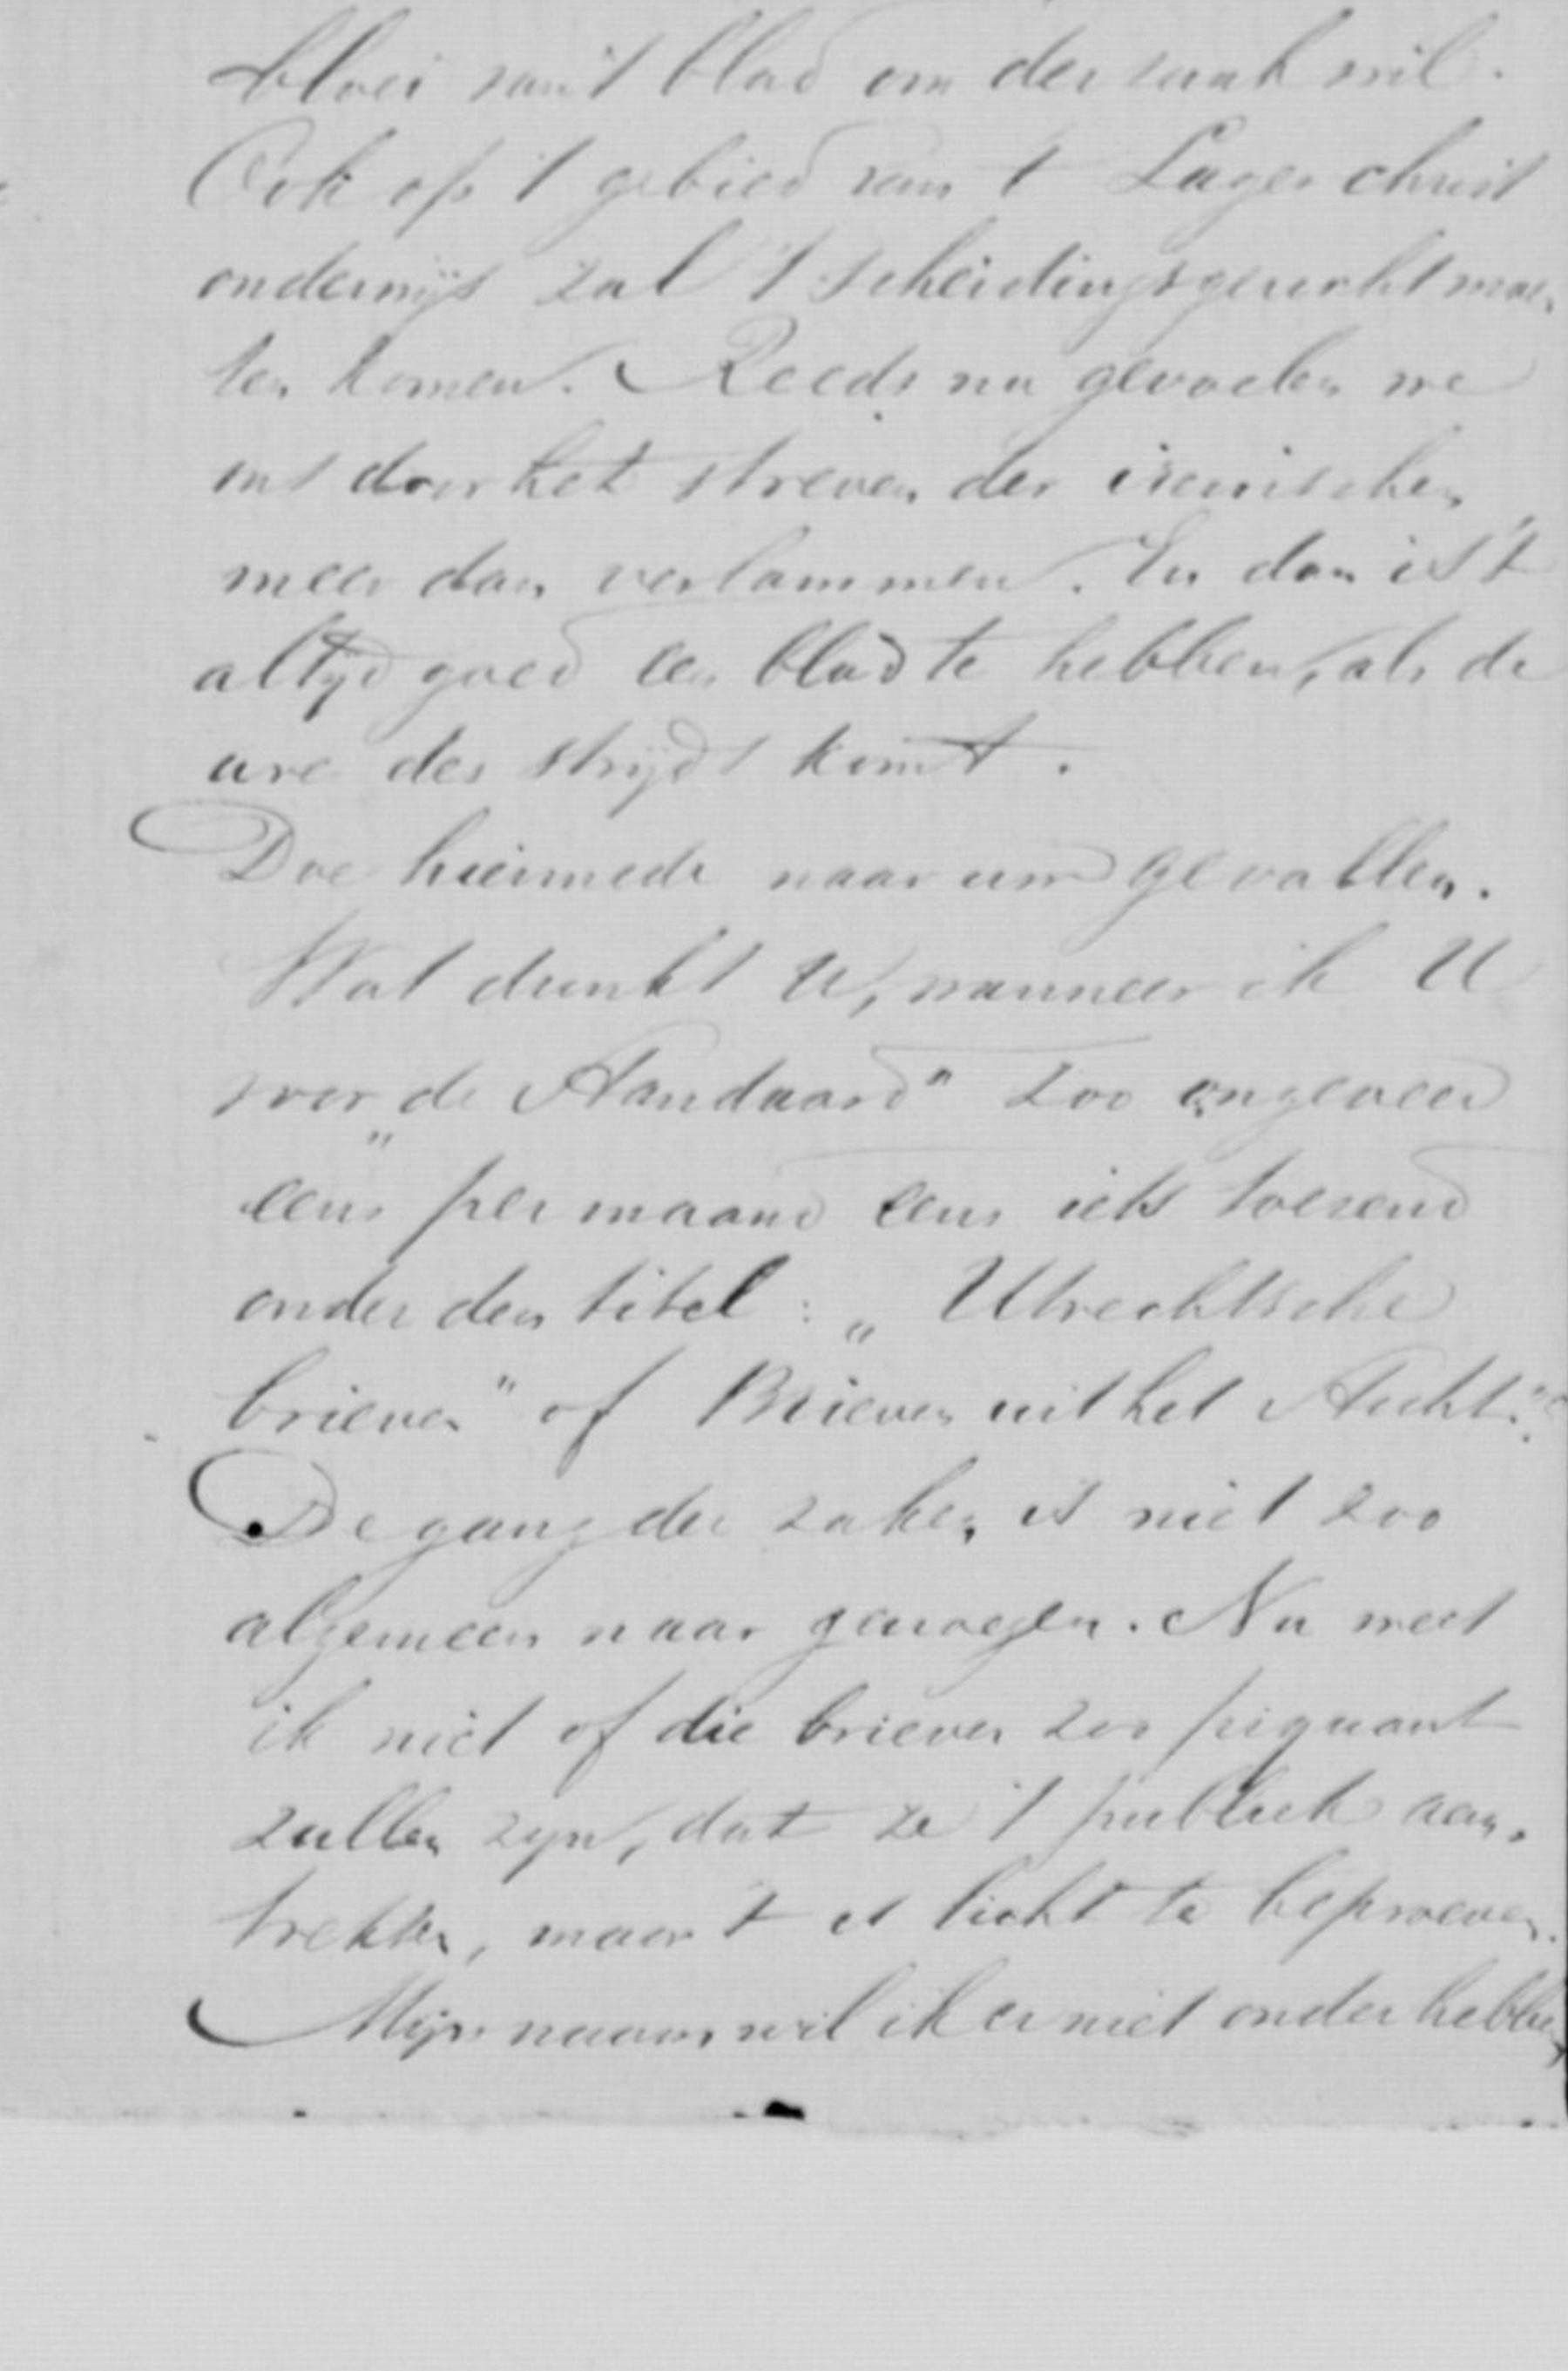 bloei van 't blad om der zaak wil.
Ook op 't gebied van 't Lager christ
onderwijs zal 't scheidingsgerucht moe„
ten komen. Reeds nu gevoelen we
ons door het streven der irenischen
meer dan verlammen. En dan is 't
altijd goed een blad te hebben, als de
ure des strijds komt.
Doe hiermede naar uw gevallen.
Wat dunkt U, wanneer ik U
voor „de Standaard" zoo ongeveer
eens per maand eens iets toezend
onder den titel: „Utrechtsche
brieven" of Brieven uit het Sticht."
De gang der zaken is niet zoo
algemeen naar genoegen. Nu weet
ik niet of die brieven zoo piquant
zullen zijn, dat ze 't publiek aan„
trekken, maar 't is licht te beproeven.
Mijn naam wil ik er niet onder hebben,